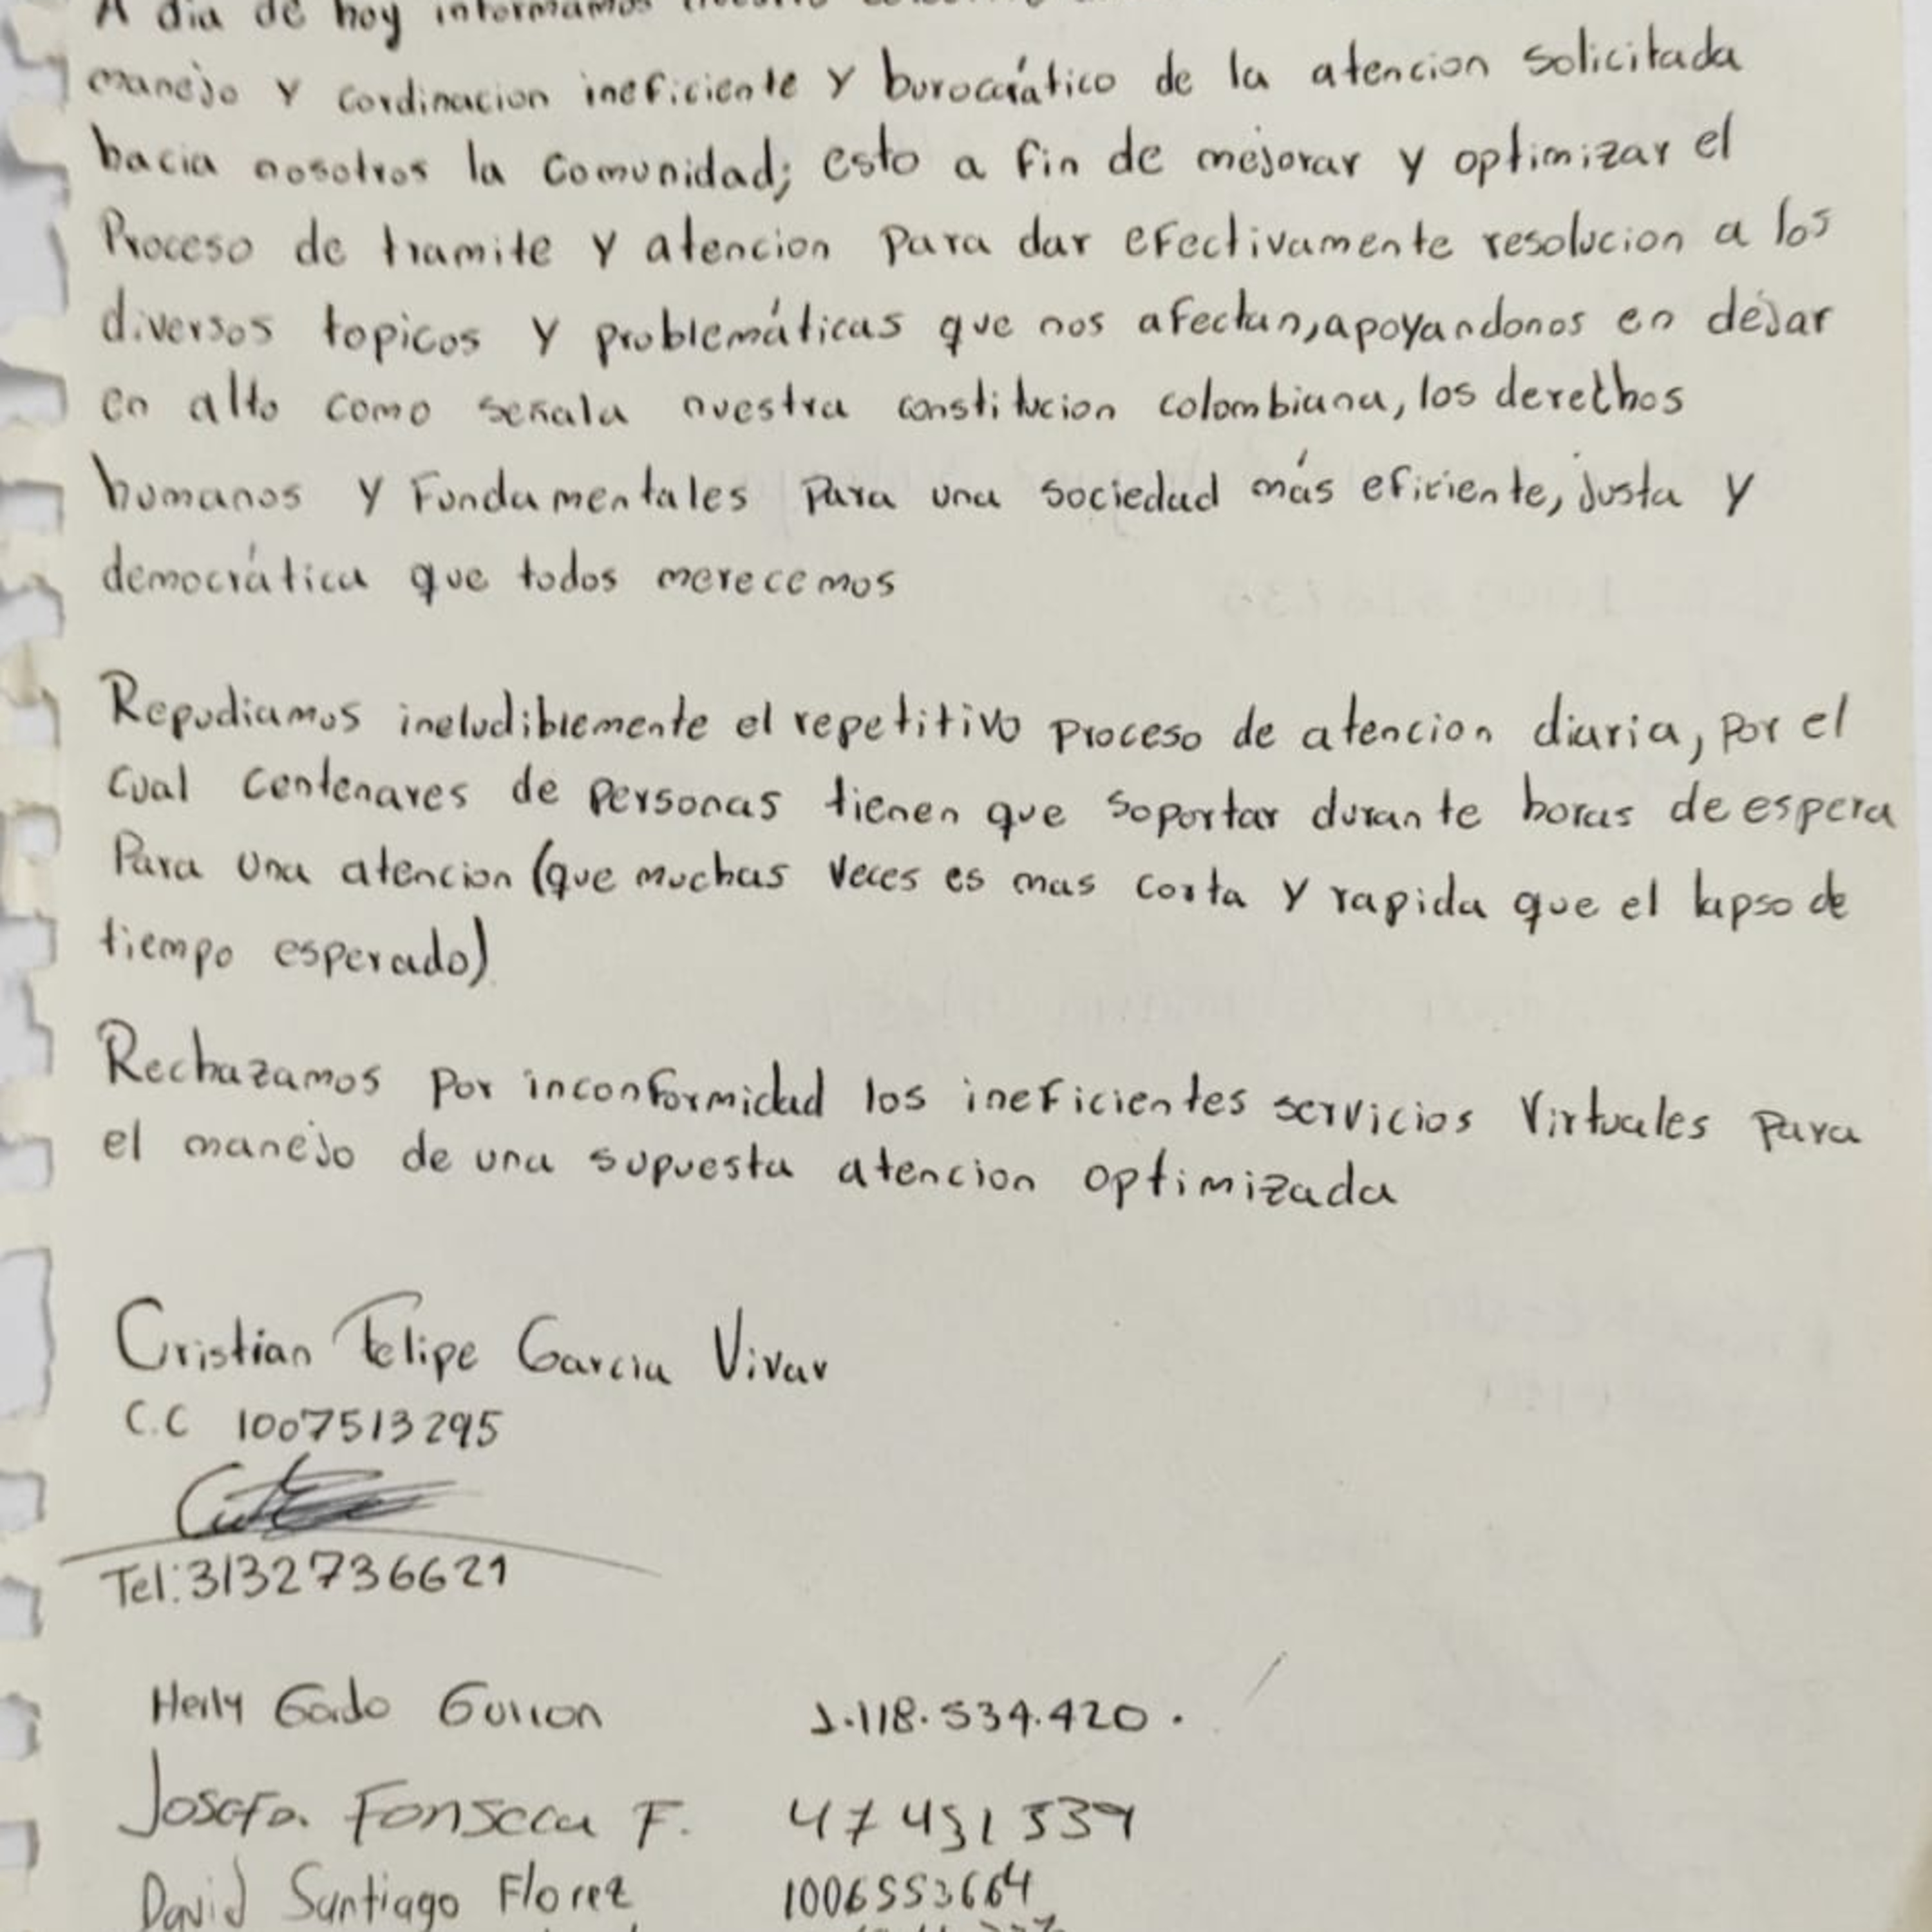 A dia de hoy informamos nuestro
manejo y cordinacion ineficiente y burocrático de la atencion solicitada
hacia nosotros la comunidad; esto a fin de mejorar y optimizar el
Proceso de tramite y atencion para dar efectivamente resolucion a los
diversos topicos y problemáticas que nos afectan, apoyandonos en dejar
en alto como señala nuestra constitucion colombiana, los derechos
humanos y Fundamentales para una sociedad más eficiente, justa y
democrática que todos merecemos
Repudiamos ineludiblemente el repetitivo proceso de atencion diaria, por el
cual centenares de personas tienen que soportar durante horas de espera
Para una atencion (que muchas veces es mas corta y rapida que el lapso de
tiempo esperado)
Rechazamos por inconformidad los ineficientes servicios Virtuales para
el manejo de una supuesta atencion optimizada
Cristian Felipe Garcia Vivar
C.C 1007513295
Tel: 3132736621
Gado 1.118.534.420.
Josefa. Fonseca F.
David Santiago Florez 1006553664